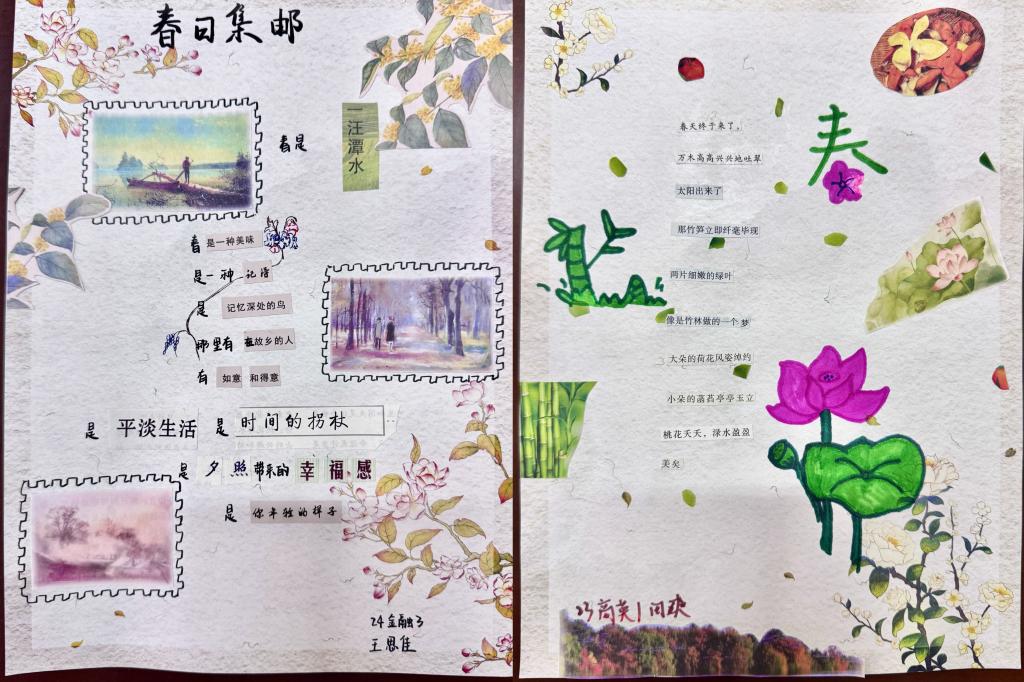 春日集邮
一汪潭水
春是
春是一种美味
是一种 记得
是 记忆深处的鸟
哪里有 在故乡的人
有 如意 和得意
是 平淡生活 是 时间的拐杖
是 夕照带来的幸福感
是 你年轻的样子
24金融3
王思佳
春
春天终于来了，
万木高高兴兴地吐翠
太阳出来了
那竹笋立即纤毫毕现
两片细嫩的绿叶
像是竹林做的一个梦
大朵的荷花风姿绰约
小朵的菡萏亭亭玉立
桃花夭夭，渌水盈盈
美矣
23商英1